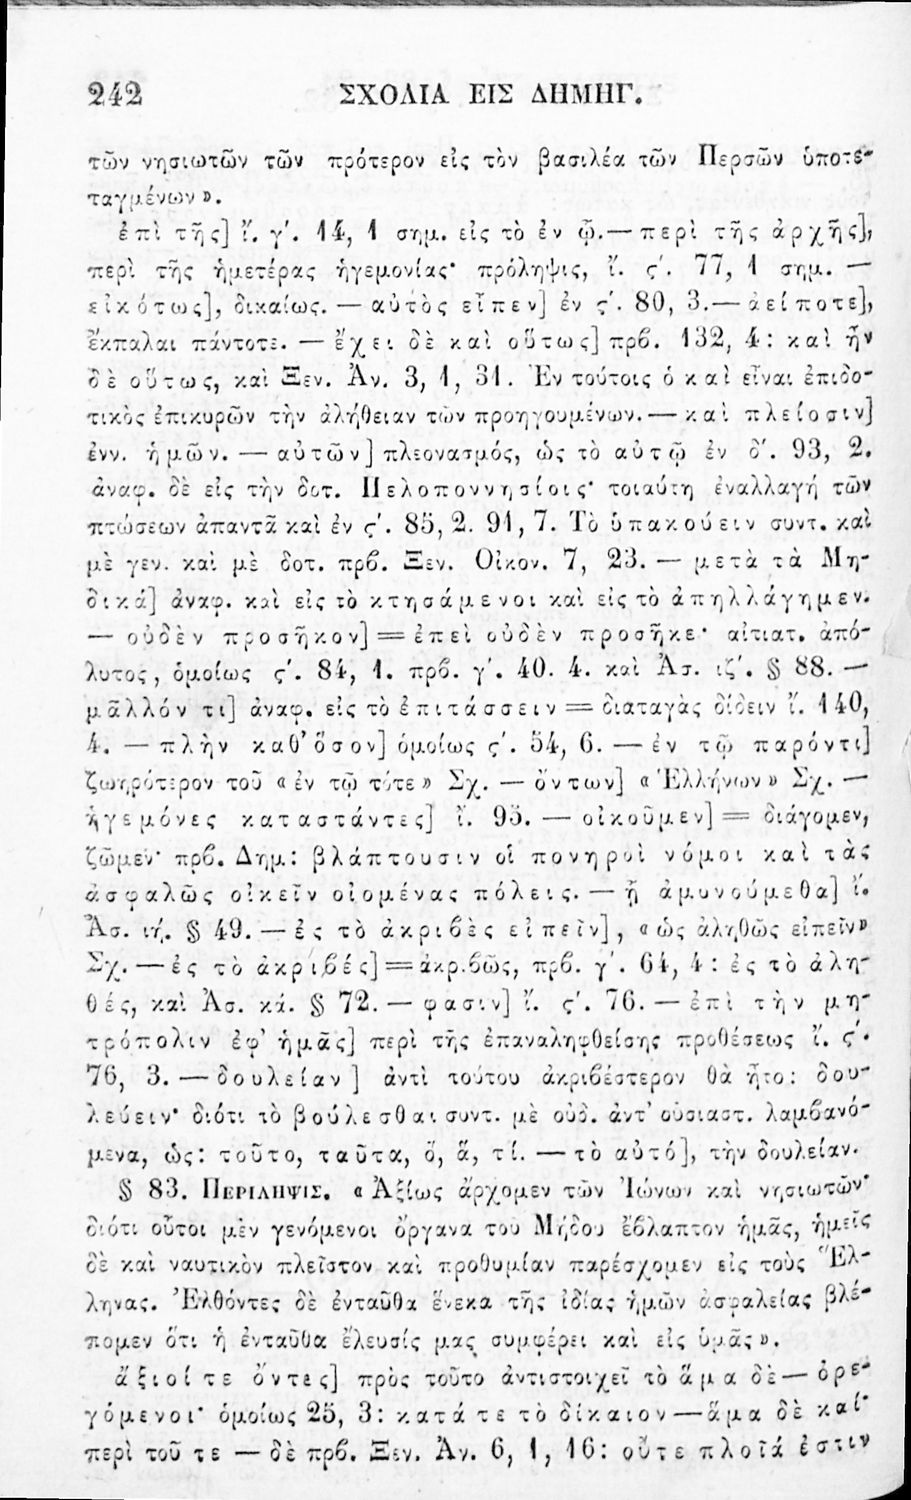 242 ΣΧΟΛΙΑ ΕΙΣ ΔΗΜΗΓ.
τῶν νησιωτῶν τῶν πρότερον εἰς τὸν βασιλέα τῶν Περσῶν ὑποτε-
ταγμένων».
ἐπὶ τῆς] ἴ. γ΄. 14, 1 σημ. εἰς τὸ ἐν ᾧ.— περὶ τῆς ἀρχῆς],
περὶ τῆς ἡμετέρας ἡγεμονίας· πρόληψις, ἴ. ς΄. 77, 1 σημ. —
εἰκότως], δικαίως. — αὐτὸς εἶπεν] ἐν ς΄. 80, 3.— ἀείποτε],
ἔκπαλαι πάντοτε. — ἔχει δὲ καὶ οὕτως] πρβ. 132, 4: καὶ ἦν
δὲ οὕτως, καὶ Ξεν. Ἀν. 3, 1, 31. Ἐν τούτοις ὁ καὶ εἶναι ἐπιδο-
τικὸς ἐπικυρῶν τὴν ἀλήθειαν τῶν προηγουμένων.— καὶ πλείοσιν]
ἐνν. ἡμῶν. — αὐτῶν] πλεονασμός, ὡς τὸ αὐτῷ ἐν δ΄. 93, 2.
ἀναφ. δὲ εἰς τὴν δοτ. Πελοποννησίοις· τοιαύτη ἐναλλαγή τῶν
πτώσεων ἀπαντᾶ καὶ ἐν ς΄. 85, 2. 91, 7. Τὸ ὑπακούειν συντ. καὶ
μὲ γεν. καὶ μὲ δοτ. πρβ. Ξεν. Οἰκον. 7, 23. — μετὰ τὰ Μη-
δικά] ἀναφ. καὶ εἰς τὸ κτησάμενοι καὶ εἰς τὸ ἀπηλλάγημεν.
— οὐδὲν προσῆκον] = ἐπεὶ οὐδὲν προσῆκε· αἰτιατ. ἀπό-
λυτος, ὁμοίως ς΄. 84, 1. πρβ. γ΄. 40. 4. καὶ Ἀσ. ιζ΄. § 88. —
μᾶλλόν τι] ἀναφ. εἰς τὸ ἐπιτάσσειν = διαταγὰς δίδειν ἴ. 140,
4. — πλὴν καθ᾽ ὅσον] ὁμοίως ς΄. 54, 6. — ἐν τῷ παρόντι]
ζωηρότερον τοῦ «ἐν τῷ τότε» Σχ. — ὄντων] «Ἑλλήνων» Σχ. —
ἡγεμόνες καταστάντες] ἴ. 95. — οἰκοῦμεν] = διάγομεν,
ζῶμεν· πρβ. Δημ: βλάπτουσιν οἱ πονηροὶ νόμοι καὶ τὰς
ἀσφαλῶς οἰκεῖν οἰομένας πόλεις. — ᾗ ἀμυνούμεθα] ἴ.
Ἀσ. ιή. § 49. — ἐς τὸ ἀκριβὲς εἰπεῖν], «ὡς ἀληθῶς εἰπεῖν»
Σχ. — ἐς τὸ ἀκριβές] = ἀκριβῶς, πρβ. γ΄. 64, 4: ἐς τὸ ἀλη-
θές, καὶ Ἀσ. κά. § 72. — φασιν] ἴ. ς΄. 76. — ἐπὶ τὴν μη-
τρόπολιν ἐφ᾽ ἡμᾶς] περὶ τῆς ἐπαναληφθείσης προθέσεως ἴ. ς΄.
76, 3. — δουλείαν] ἀντὶ τούτου ἀκριβέστερον θὰ ἦτο: δου-
λεύειν· διότι τὸ βούλεσθαι συντ. μὲ οὐδ. ἀντ᾽ οὐσιαστ. λαμβανό-
μενα, ὡς: τοῦτο, ταῦτα, ὅ, ἅ, τί. — τὸ αὐτό], τὴν δουλείαν.
§ 83. ΠΕΡΙΛΗΨΙΣ. «Ἀξίως ἄρχομεν τῶν Ἰώνων καὶ νησιωτῶν·
διότι οὗτοι μὲν γενόμενοι ὄργανα τοῦ Μήδου ἔβλαπτον ἡμᾶς, ἡμεῖς
δὲ καὶ ναυτικὸν πλεῖστον καὶ προθυμίαν παρέσχομεν εἰς τοὺς Ἕλ-
ληνας. Ἐλθόντες δὲ ἐνταῦθα ἕνεκα τῆς ἰδίας ἡμῶν ἀσφαλείας βλέ-
πομεν ὅτι ἡ ἐνταῦθα ἔλευσίς μας συμφέρει καὶ εἰς ὑμᾶς».
ἄξιοί τε ὄντες] πρὸς τοῦτο ἀντιστοιχεῖ τὸ ἅμα δὲ — ὀρε-
γόμενοι· ὁμοίως 25, 3: κατά τε τὸ δίκαιον — ἅμα δὲ καί·
περὶ τοῦ τε — δὲ πρβ. Ξεν. Ἀν. 6, 1, 16: οὔτε πλοῖά ἐστιν